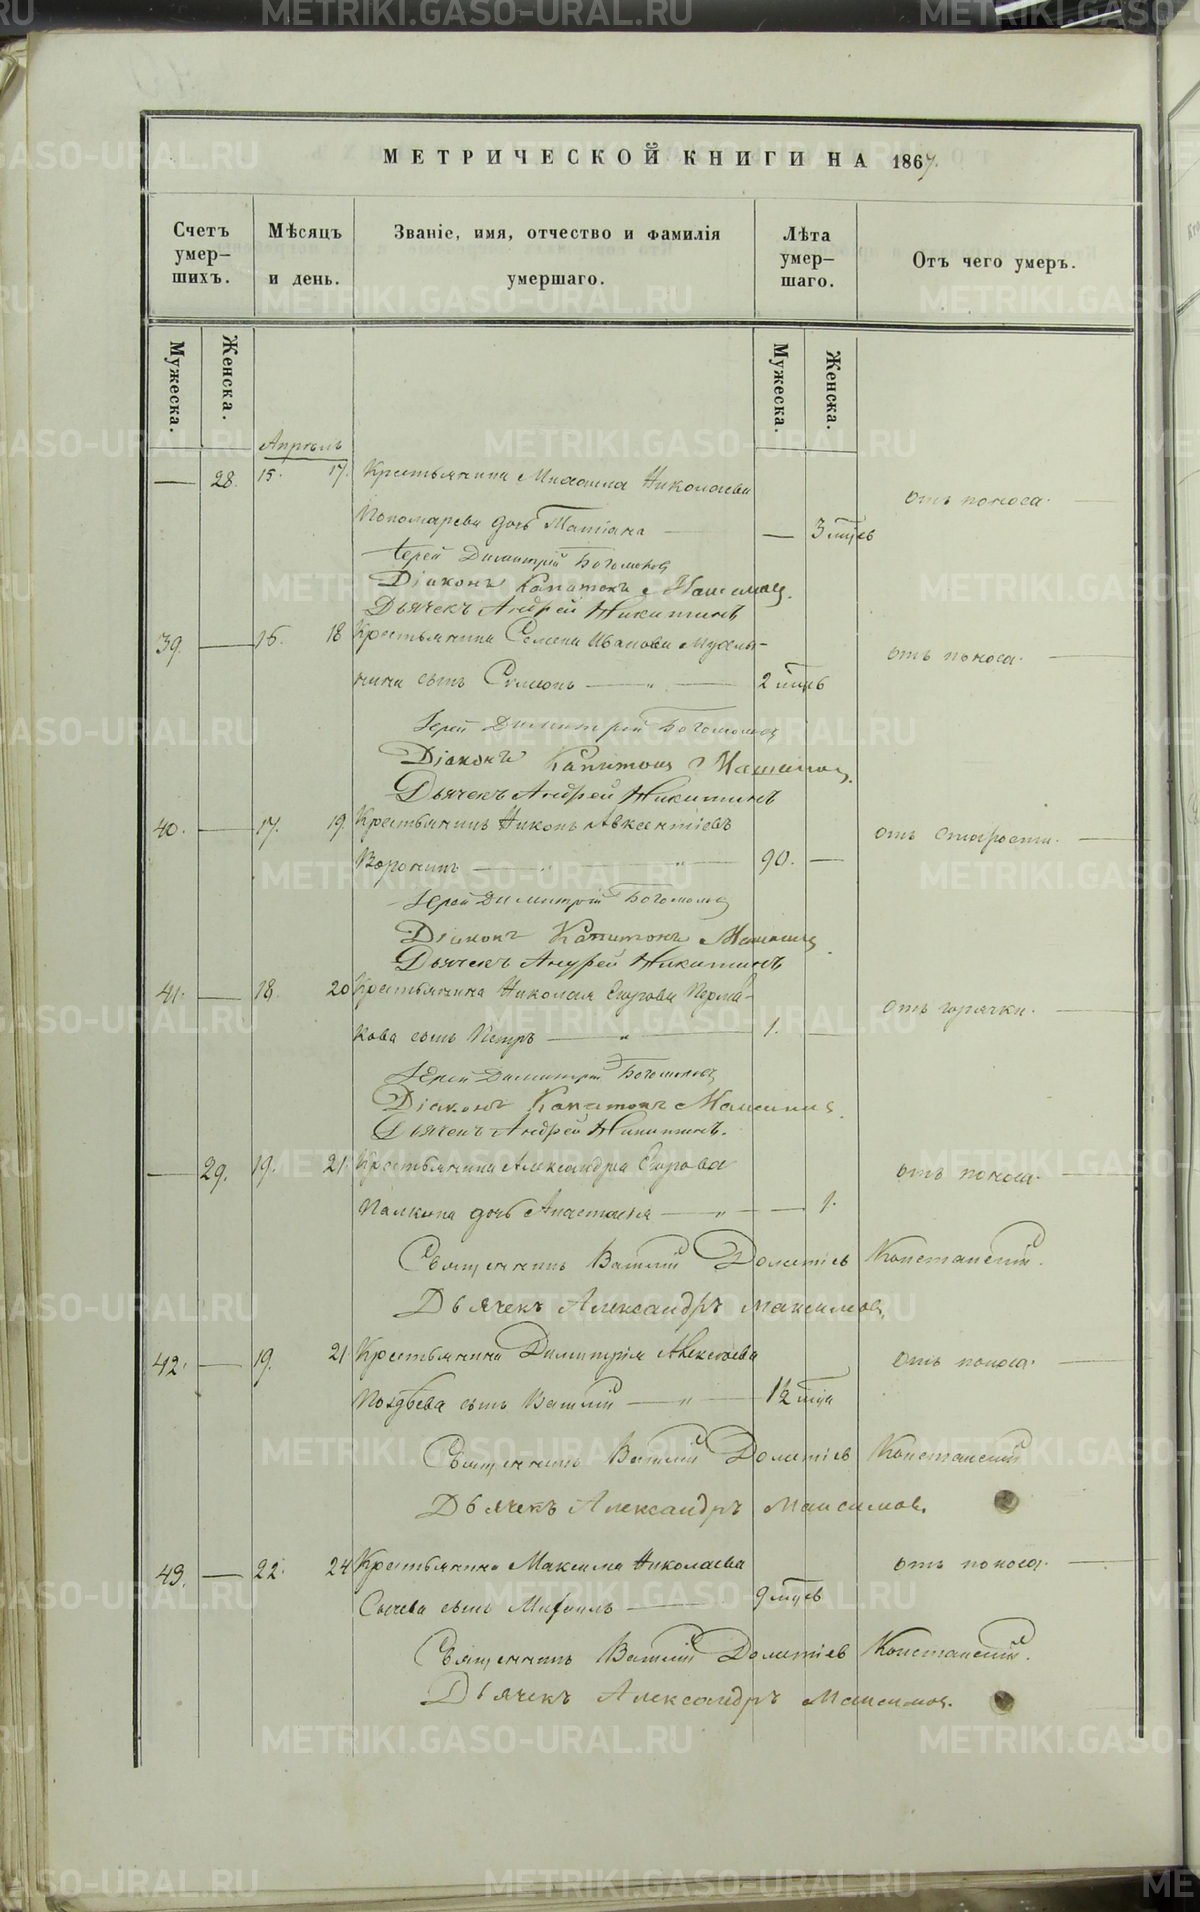 МЕТРИЧЕСКОЙ КНИГИ НА 1867.
Счетъ умер-шихъ.
Мѣсяцъ и день.
Званіе, имя, отчество и фамилія умершаго.
Лѣта умер-шаго.
Отъ чего умеръ.
Мужеска.
Женска.
Мужеска.
Женска.
Апрѣль
— 28. 15. 17. Крестьянина Михаила Николаева
отъ поноса.
Пономарева дочь Татіана — — 3 мцѣв
Іерей Димитрій Богомоловъ
Діаконъ Капитонъ
Дьячекъ Андрей Никитинъ
39. — 16. 18 Крестьянина Семена Иванова Мухлы-
отъ поноса.
нина сынъ Симеонъ — " — 2 мцѣв
Іерей Димитрій Богомоловъ
Діаконъ Капитонъ
Дьячекъ Андрей Никитинъ
40. — 17. 19. Крестьянинъ Никонъ Авксентіевъ
отъ старости.
Воронинъ — " — 90. —
Іерей Димитрій Богомоловъ
Діаконъ Капитонъ
Дьячекъ Андрей Никитинъ
41. — 18. 20 Крестьянина Николая Егорова Перма-
отъ горячки.
кова сынъ Петръ — " — 1. —
Іерей Димитрій Богомоловъ
Діаконъ Капитонъ
Дьячекъ Андрей Никитинъ.
— 29. 19. 21. Крестьянина Александра Егорова
отъ поноса.
Палкина дочь Анастасія — " — 1.
Священникъ Василій Дометіев Констанский.
Дьячекъ Александръ Максимов.
42. — 19. 21 Крестьянина Димитрія Алексѣева
отъ поноса.
Поздѣева сынъ Василій — " — 1½ мца
Священникъ Василій Дометіев Констанский
Дьячекъ Александръ Максимов.
43. — 22. 24 Крестьянина Максима Николаева
отъ поноса.
Сычева сынъ Михаилъ — 9 мцѣв
Священникъ Василій Дометіев Констанский.
Дьячекъ Александръ Максимов.
METRIKI.GASO-URAL.RU